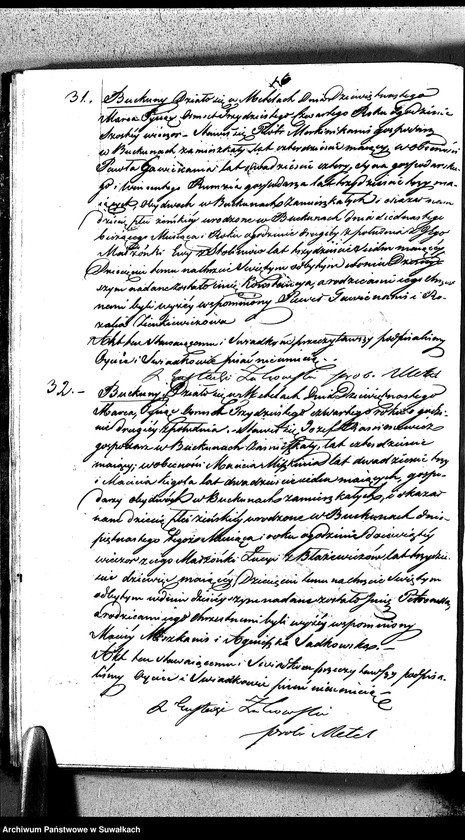 31. Buckuny Działo się w Metelach Dnia Dziewiętnastego
Marca Tysiąc Ośmset Trzydziestego Czwartego Roku o godzinie
szóstej wieczor Stawił się Piotr gospodarz
w Buckunach zamieszkały lat czterdzieści mający w obecności
Pawła lat dwadzieścia cztery, syna gospodarskie-
go i Wincentego gospodarza lat trzydzieści trzy ma-
jących obydwóch w Buckunach zamieszkałych, i okazał nam
dziecię płci żeńskiej urodzone w Buckunach dnia jedenastego
bieżącego Miesiąca i Roku o godzinie drugiej z południa z jego
Małżonki Ewy z lat trzydzieści siedem mającej
Dziecięciu temu na chrzcie świętym odbytym w dniu
nadane zostało imie a rodzicami jego chrzest-
nemi byli wyżej wspomniony Paweł i Ro-
zalia
Akt ten stawaiącemu i świadkom przeczytawszy podpisaliśmy
Oyciec i Świadkowie pisać nieumieią.
X Eustachi Zulowski prob. Metel
32. Buckuny Działo się w Metelach Dnia Dziewiętnastego
Marca, Tysiąc Ośmset Trzydziestego czwartego roku o godzi-
nie drugiej z południa. Stawił się Jozef
gospodarz w Buckunach zamieszkały, lat czterdzieści
mający; w obecności Macieia lat dwadzieścia trzy
i Macieia lat dwadzieścia siedm mających, gospo-
darzy obydwóch w Buckunach zamieszkałych, i okazał
nam dziecię płci żeńskiej urodzone w Buckunach dnia
piętnastego tegoż Miesiąca i roku o godzinie dziewiątej
wieczor z jego Małżonki Łucyi z Błażewiczow lat trzydzie-
ście dziewięć mającej Dziecięciu temu na chrzcie świętym
odbytym w dniu nadane zostało Jmię Petronella,
a rodzicami jego chrzestnemi byli wyżej wspomniony
Maciey i Agnieszka Sadkowska.
Akt ten stawaiącemu i świadkom przeczytawszy podpisa-
liśmy Oyciec i Świadkowie pisać nieumieią
X Eustachi Zulowski
prob. Metel
Archiwum Państwowe w Suwałkach